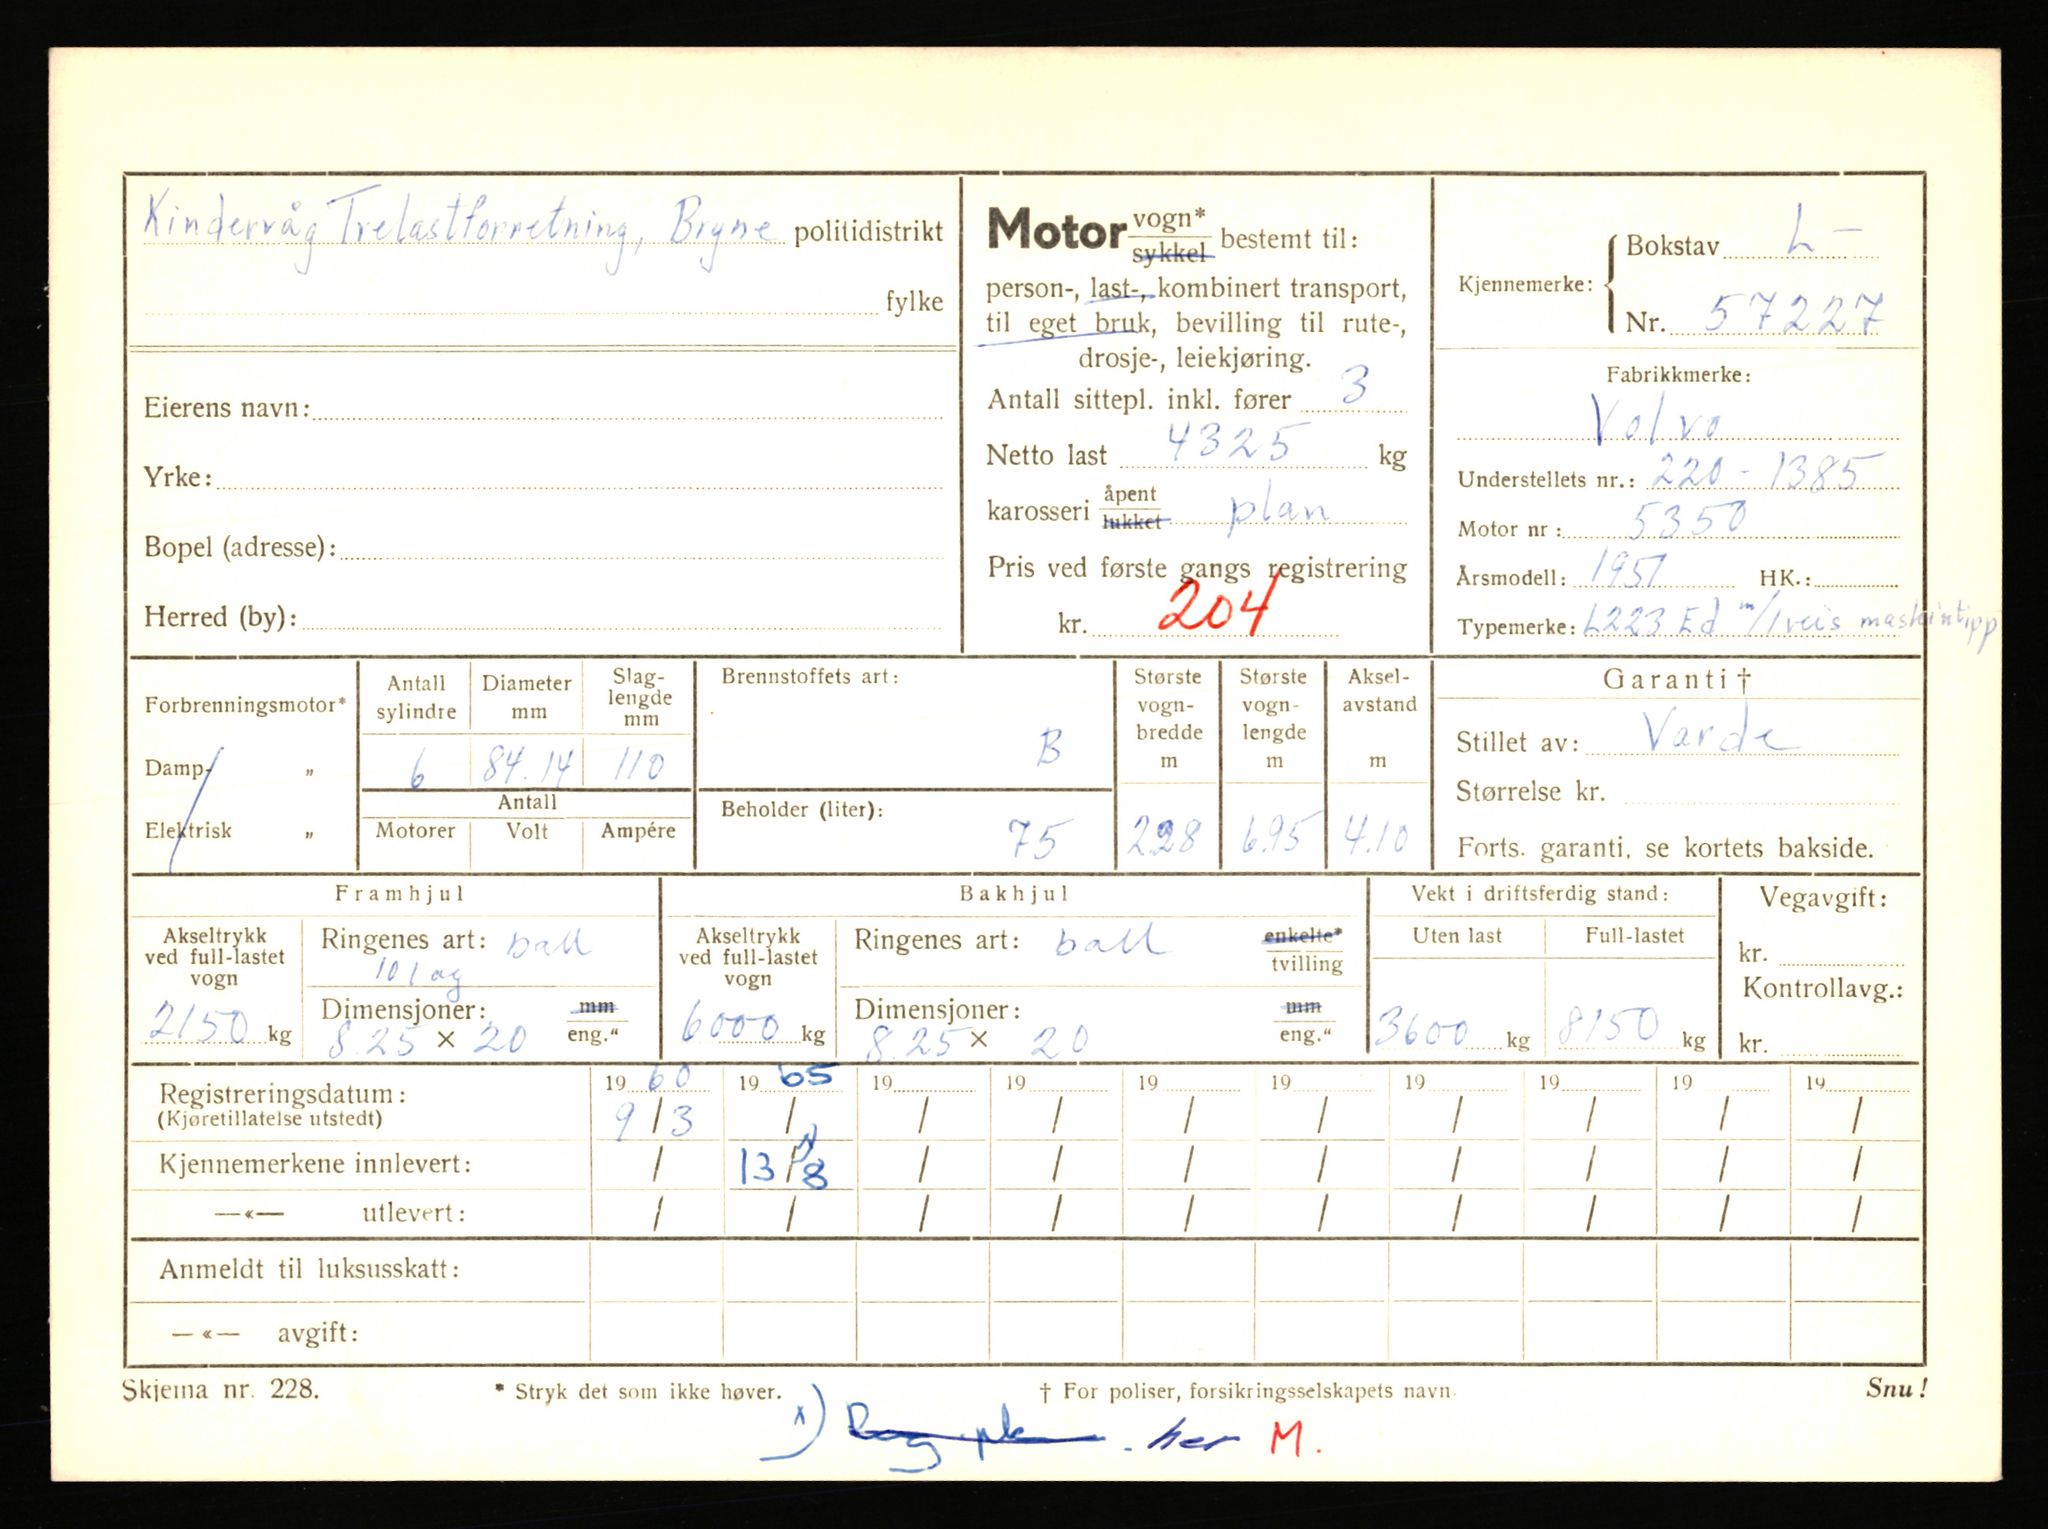 Kindervåg Trelastforretning, Bryne politidistrikt
fylke
Eierens navn:
Yrke:
Bopel (adresse):
Herred (by):
Motor vogn* sykkel bestemt til:
person-, last-, kombinert transport,
til eget bruk, bevilling til rute-,
drosje-, leiekjøring.
Antall sittepl. inkl. fører 3
Netto last 4325 kg
karosseri åpent lukket plan
Pris ved første gangs registrering
kr. 204
Kjennemerke: Bokstav L-
Nr. 57227
Fabrikkmerke:
Volvo
Understellets nr.: 220-1385
Motor nr: 5350
Årsmodell: 1951 HK.:
Typemerke: L223 Ed m/1 veis maskintipp
Forbrenningsmotor*
Damp- „
Elektrisk „
Antall sylindre Diameter mm Slag-lengde mm
6 84.14 110
Antall
Motorer Volt Ampére
Brennstoffets art:
B
Beholder (liter):
75
Største vogn-bredde m
2.28
Største vogn-lengde m
6.95
Aksel-avstand m
4.10
Garanti †
Stillet av: Varde
Størrelse kr.
Forts. garanti, se kortets bakside.
Framhjul
Akseltrykk ved full-lastet vogn
2150 kg
Ringenes art: ball
10 lag
Dimensjoner: mm
8.25 × 20 eng."
Bakhjul
Akseltrykk ved full-lastet vogn
6000 kg
Ringenes art: ball enkelte* tvilling
Dimensjoner: mm
8.25 × 20 eng."
Vekt i driftsferdig stand:
Uten last Full-lastet
3600 kg 8150 kg
Vegavgift:
kr.
Kontrollavg.:
kr.
19 60 19 65 19 19 19 19 19 19 19 19
Registreringsdatum: 9/3 / / / / / / / / /
(Kjøretillatelse utstedt)
Kjennemerkene innlevert: / 13/8 x) / / / / / / / /
—«— utlevert: / / / / / / / / / /
Anmeldt til luksusskatt:
—«— avgift:
Skjema nr. 228. * Stryk det som ikke høver. † For poliser, forsikringsselskapets navn. Snu!
x) her M.